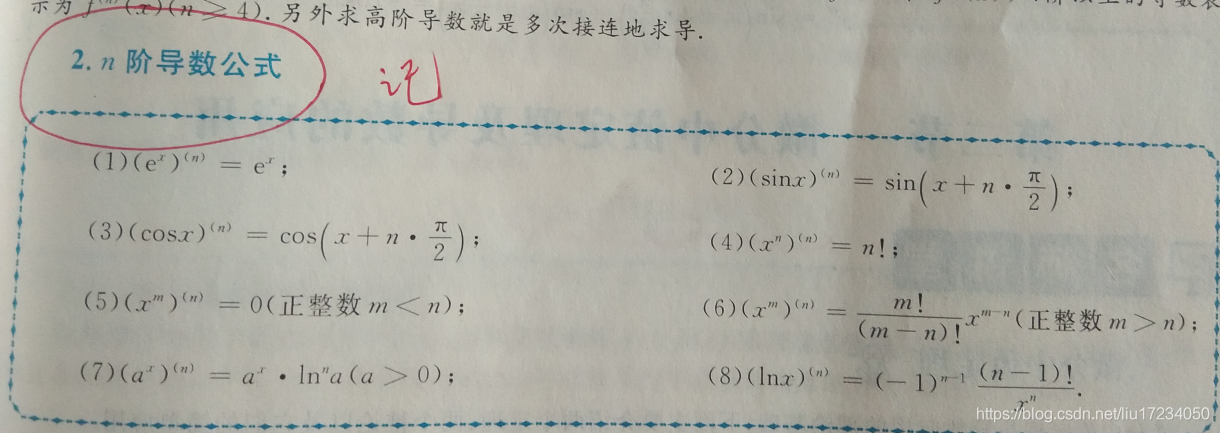 示为 f⁽ⁿ⁾(x)(n ≥ 4). 另外求高阶导数就是多次接连地求导.
2. n 阶导数公式
记
(1)(eˣ)⁽ⁿ⁾ = eˣ;
(2)(sinx)⁽ⁿ⁾ = sin(x + n · π/2);
(3)(cosx)⁽ⁿ⁾ = cos(x + n · π/2);
(4)(xⁿ)⁽ⁿ⁾ = n!;
(5)(xᵐ)⁽ⁿ⁾ = 0(正整数 m < n);
(6)(xᵐ)⁽ⁿ⁾ = m!/(m − n)! xᵐ⁻ⁿ(正整数 m > n);
(7)(aˣ)⁽ⁿ⁾ = aˣ · lnⁿa(a > 0);
(8)(lnx)⁽ⁿ⁾ = (−1)ⁿ⁻¹ (n − 1)!/xⁿ.
https://blog.csdn.net/liu17234050